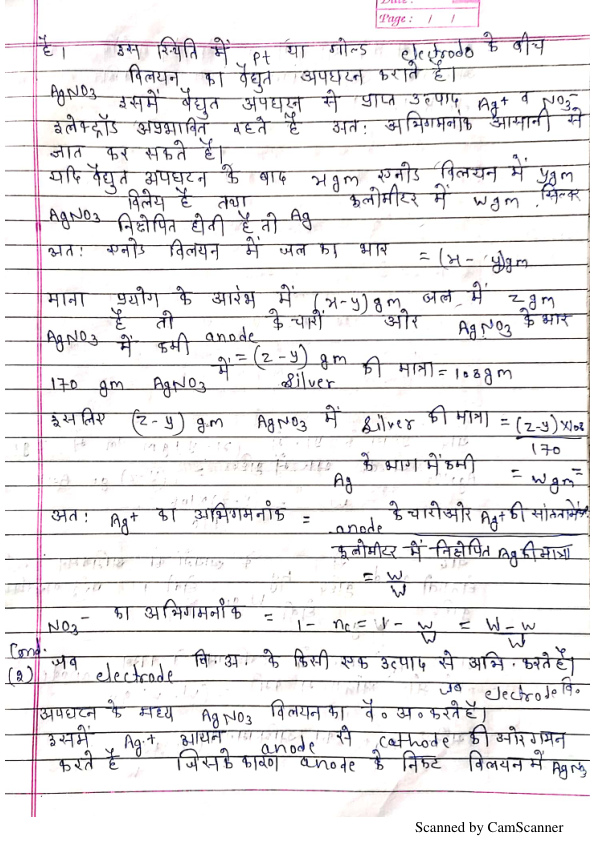 Page: / /
है। इस स्थिति में Pt या गोल्ड electrode के बीच
AgNO3 विलयन का वैद्युत अपघटन कराते हैं।
इसमें वैद्युत अपघटन से प्राप्त उत्पाद Ag+ व NO3-
इलेक्ट्रॉड अप्रभावित रहते हैं अतः अभिगमनांक आसानी से
ज्ञात कर सकते हैं।
यदि वैद्युत अपघटन के बाद xgm एनोड विलयन में ygm
AgNO3 विलेय है तथा कूलोमीटर में wgm सिल्वर
निक्षेपित होती है तो Ag
अतः एनोड विलयन में जल का भार = (x - y)gm
माना प्रयोग के आरंभ में (x-y) gm जल में zgm
AgNO3 है तो anode के चारों ओर AgNO3 के भार
में कमी = (z-y) gm
170 gm AgNO3 में Silver की मात्रा = 108gm
इसलिए (z-y) gm AgNO3 में Silver की मात्रा = (z-y)×108
170
Ag के भाग में कमी = wgm =
अतः Ag+ का अभिगमनांक = anode के चारो ओर Ag+ की
कूलोमीटर में निक्षेपित Ag की मात्रा
= w
W
NO3- का अभिगमनांक = 1 - nc = 1 - w = W - w
W W
Cond.
(2) जब electrode वि.अ. के किसी एक उत्पाद से अभि. करते है।
जब electrode वि०
अपघटन के मध्य AgNO3 विलयन का वै० अ० करते है।
इसमें Ag+ आयन anode से cathode की ओर गमन
करते है जिसके कारण anode के निकट विलयन में AgNO3
Scanned by CamScanner